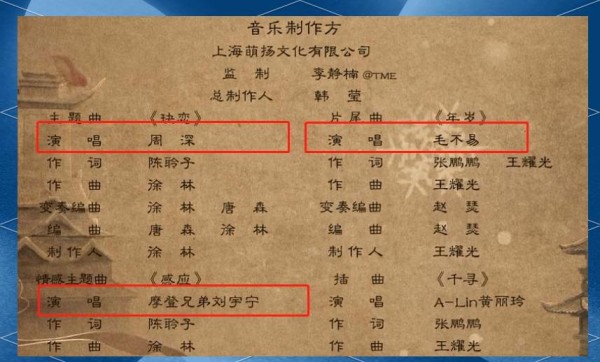 音乐制作方
上海萌扬文化有限公司
监 制 李静楠 @TME
总制作人 韩 莹
主 题 曲 《玦恋》 片 尾 曲 《年岁》
演 唱 周 深 演 唱 毛不易
作 词 陈聆子 作 词 张鹏鹏 王耀光
作 曲 涂 林 作 曲 王耀光
变奏编曲 涂 林 唐 森 变奏编曲 赵 琵
编 曲 唐 森 涂 林 编 曲 赵 琵
制 作 人 涂 林 制 作 人 王耀光
情感主题曲 《感应》 插 曲 《千寻》
演 唱 摩登兄弟刘宇宁 演 唱 A-Lin黄丽玲
作 词 陈聆子 作 词 张鹏鹏
作 曲 涂 林 作 曲 王耀光